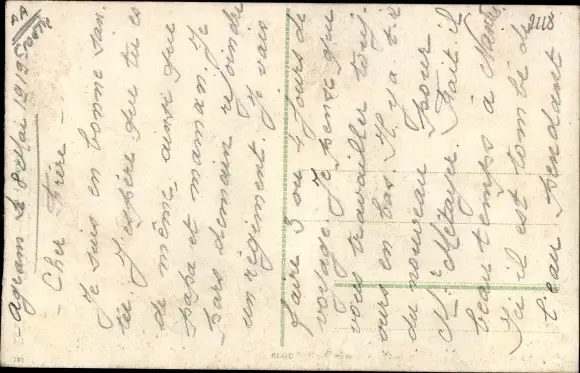 Agram le 8 Mai 1919
- Cher Frère -
Je suis en bonne san-
té. J'espère que tu es
de même ainsi que
papa et maman. Je
pars demain rejoindre
un régiment. Je vais
faire 3 ou 4 jours de
voyage. Je pense que
vous travailler touj-
ours en bas. Il y a
du nouveau pour
Métayer. Fait il
beau temps à
Ici il est tombé de
l'eau pendant
2118